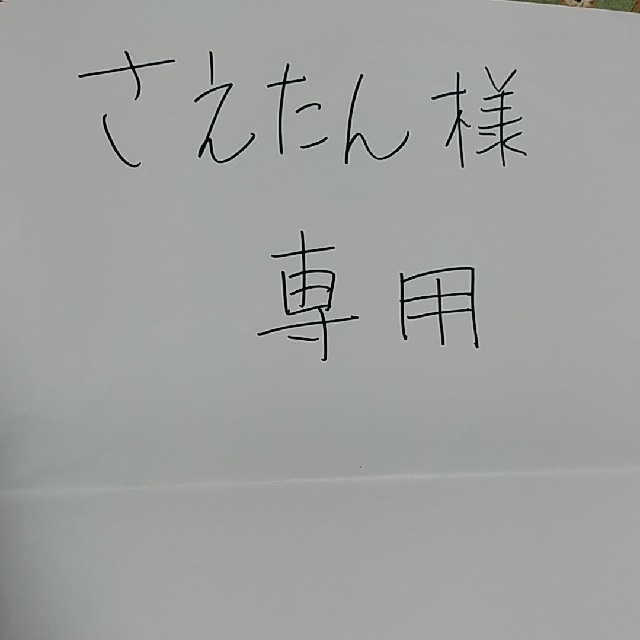 さえたん様
専用